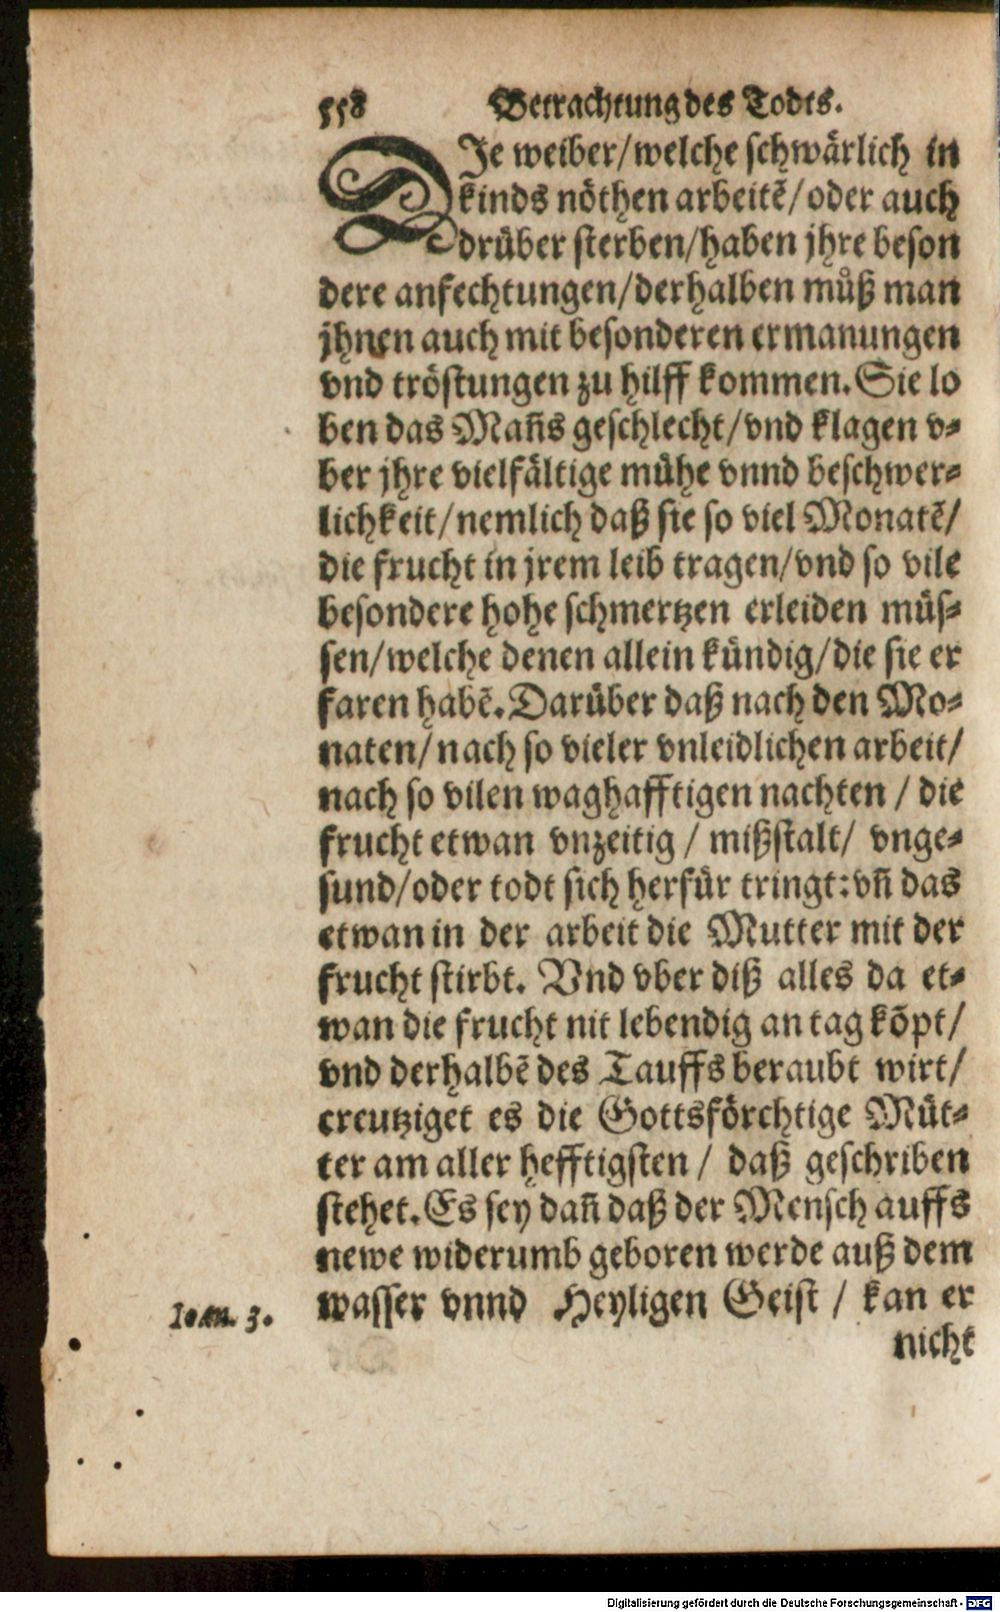 558 Betrachtung des Todts.
DIe weiber/welche schwärlich in
kinds nöthen arbeitẽ/oder auch
drüber sterben/haben jhre beson
dere anfechtungen/derhalben můß man
jhnen auch mit besonderen ermanungen
vnd tröstungen zu hilff kommen. Sie lo
ben das Mañs geschlecht/vnd klagen v⸗
ber jhre vielfältige mühe vnnd beschwer⸗
lichkeit/nemlich daß sie so viel Monatẽ/
die frucht in jrem leib tragen/vnd so vile
besondere hohe schmertzen erleiden müs⸗
sen/welche denen allein kündig/die sie er
faren habẽ. Darüber daß nach den Mo⸗
naten/nach so vieler vnleidlichen arbeit/
nach so vilen waghafftigen nachten / die
frucht etwan vnzeitig / mißstalt/ vnge⸗
sund/oder todt sich herfür tringt: vñ das
etwan in der arbeit die Mutter mit der
frucht stirbt. Vnd vber diß alles da et⸗
wan die frucht nit lebendig an tag kõpt/
vnd derhalbẽ des Tauffs beraubt wirt/
creutziget es die Gottsförchtige Müt⸗
ter am aller hefftigsten / daß geschriben
stehet. Es sey dañ daß der Mensch auffs
newe widerumb geboren werde auß dem
Ioan. 3. wasser vnnd Heyligen Geist / kan er
nicht
Digitalisierung gefördert durch die Deutsche Forschungsgemeinschaft - DFG